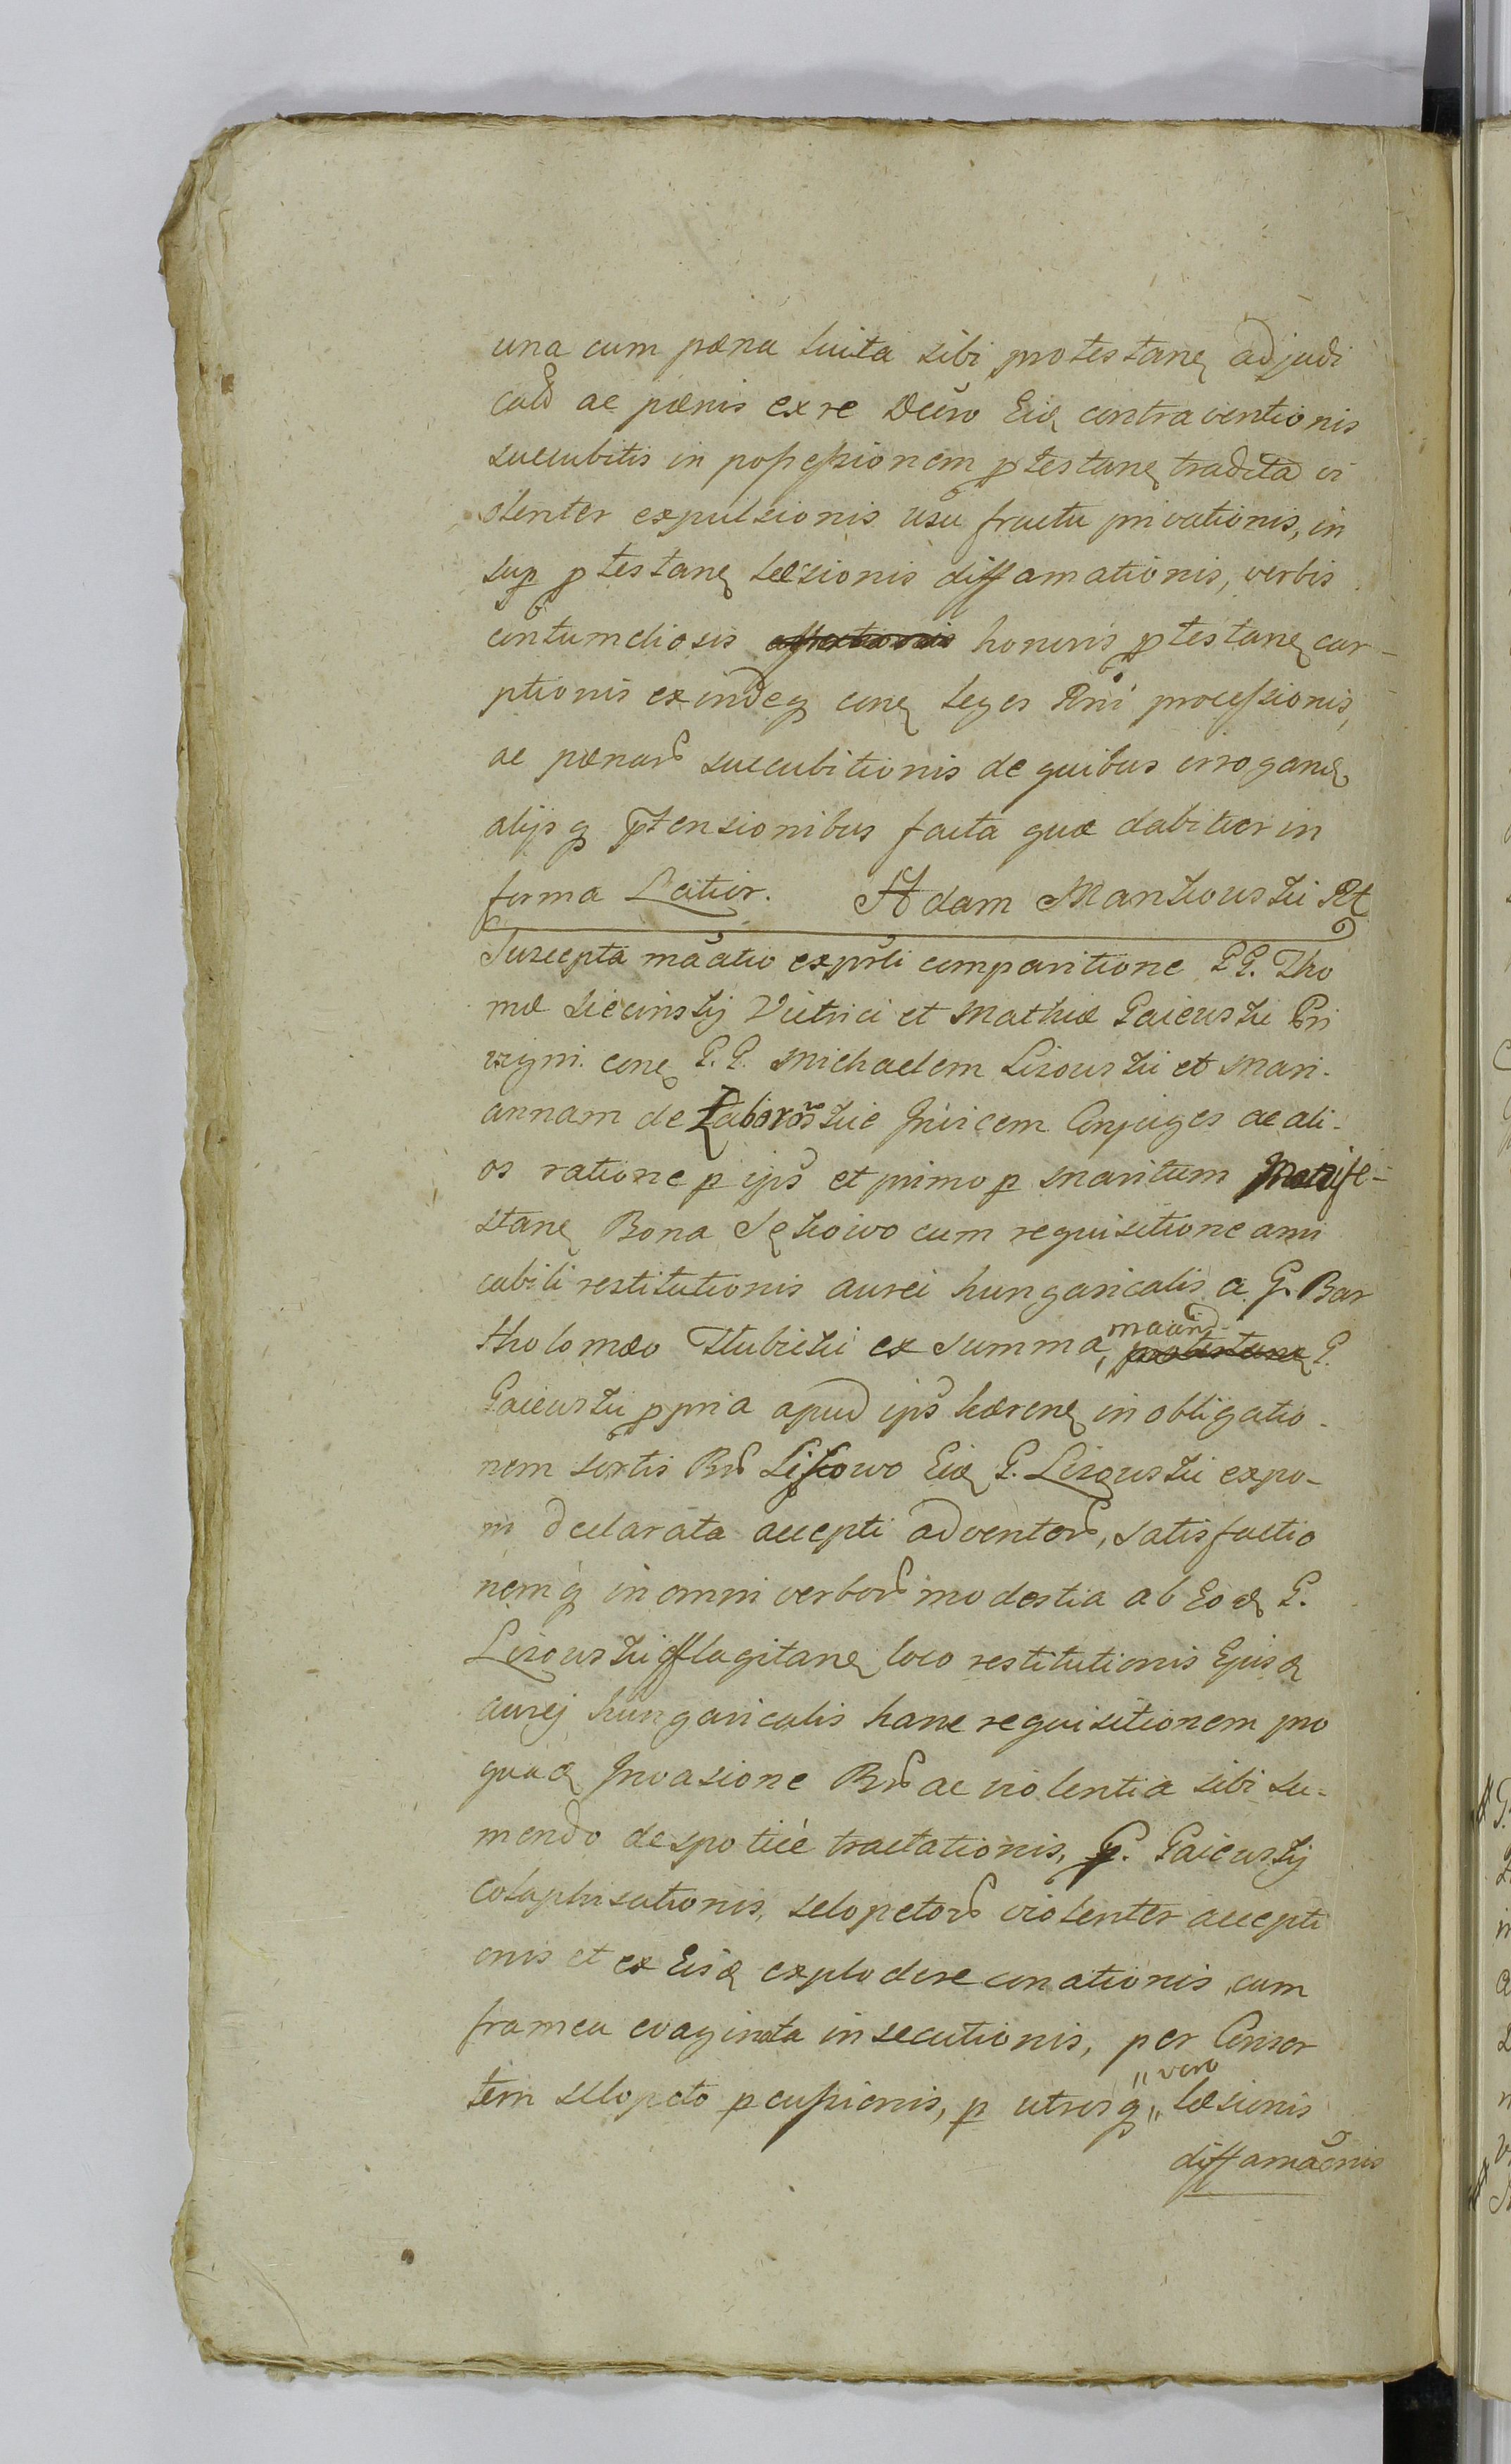 una cum pæna luita sibi protestane adjudi
cato ac pænis ex re Decro Eid contraventionis
succubitis in possessionem ptestane tradita vi
olenter expulsionis usu fructu privationis, in
sup ptestane læsionis diffamationis, verbis
contumeliosis honoris ptestane car-
ptionis exindeq cone leges Rni processionis,
ac pænaru succubitionis de quibus irrogane
alijsq ptensionibus facta quæ dabitur in
forma Latior. Adam Mankouski
Suscepta maatio ex psli comparitione GG. Tho
mæ Siecinskij Vitrici et Mathiæ Gaiewski Pri
vigni cone G.G. Michaelem Lisouski et Mari-
annam de Zaborowskie Invicem Conjuges ac ali-
os ratione p ips et primo p Maritum Manife-
stane Bona Sękowo cum requisitione ami
cabili restitutionis aurei hungaricalis a G. Bar
tholomæo Dłubicki ex Summa, maand G.
Gaiewski ppria apud ips hærene in obligatio-
nem sortis Bru Liskowo Eid G. Lisouski expo-
ni declarata accepti adventoru, satisfactio
nemq in omni verboru modestia ab Eod G.
Lisouski efflagitane loco restitutionis Ejusd
aurej hungaricalis hanc requisitionem pro
quad Invasione Bru ac violentia sibi su-
mendo despoticè tractationis, G. Gaiewskij
colaphisationis, sclopetoru violenter accepti
onis et ex Eisd explodere conationis cum
framea evaginata insecutionis, per Consor
tem sclopeto pcussionis, p utrosq " vero " læsionis
diffamaonis